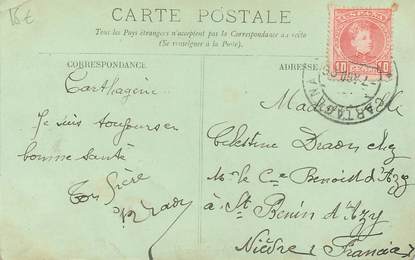 15€
CARTE POSTALE
Tous les Pays étrangers n'acceptent pas la Correspondance au recto
(Se renseigner à la Poste).
CORRESPONDANCE
ADRESSE
ESPAÑA
10 10
CARTAGENA
Carthagène
Je suis toujours en
bonne santé
Ton frère
Celestine Draon chez
Mr le Cte Benoist d'Azy
à St Benin d'Azy
Nièvre (Francia)